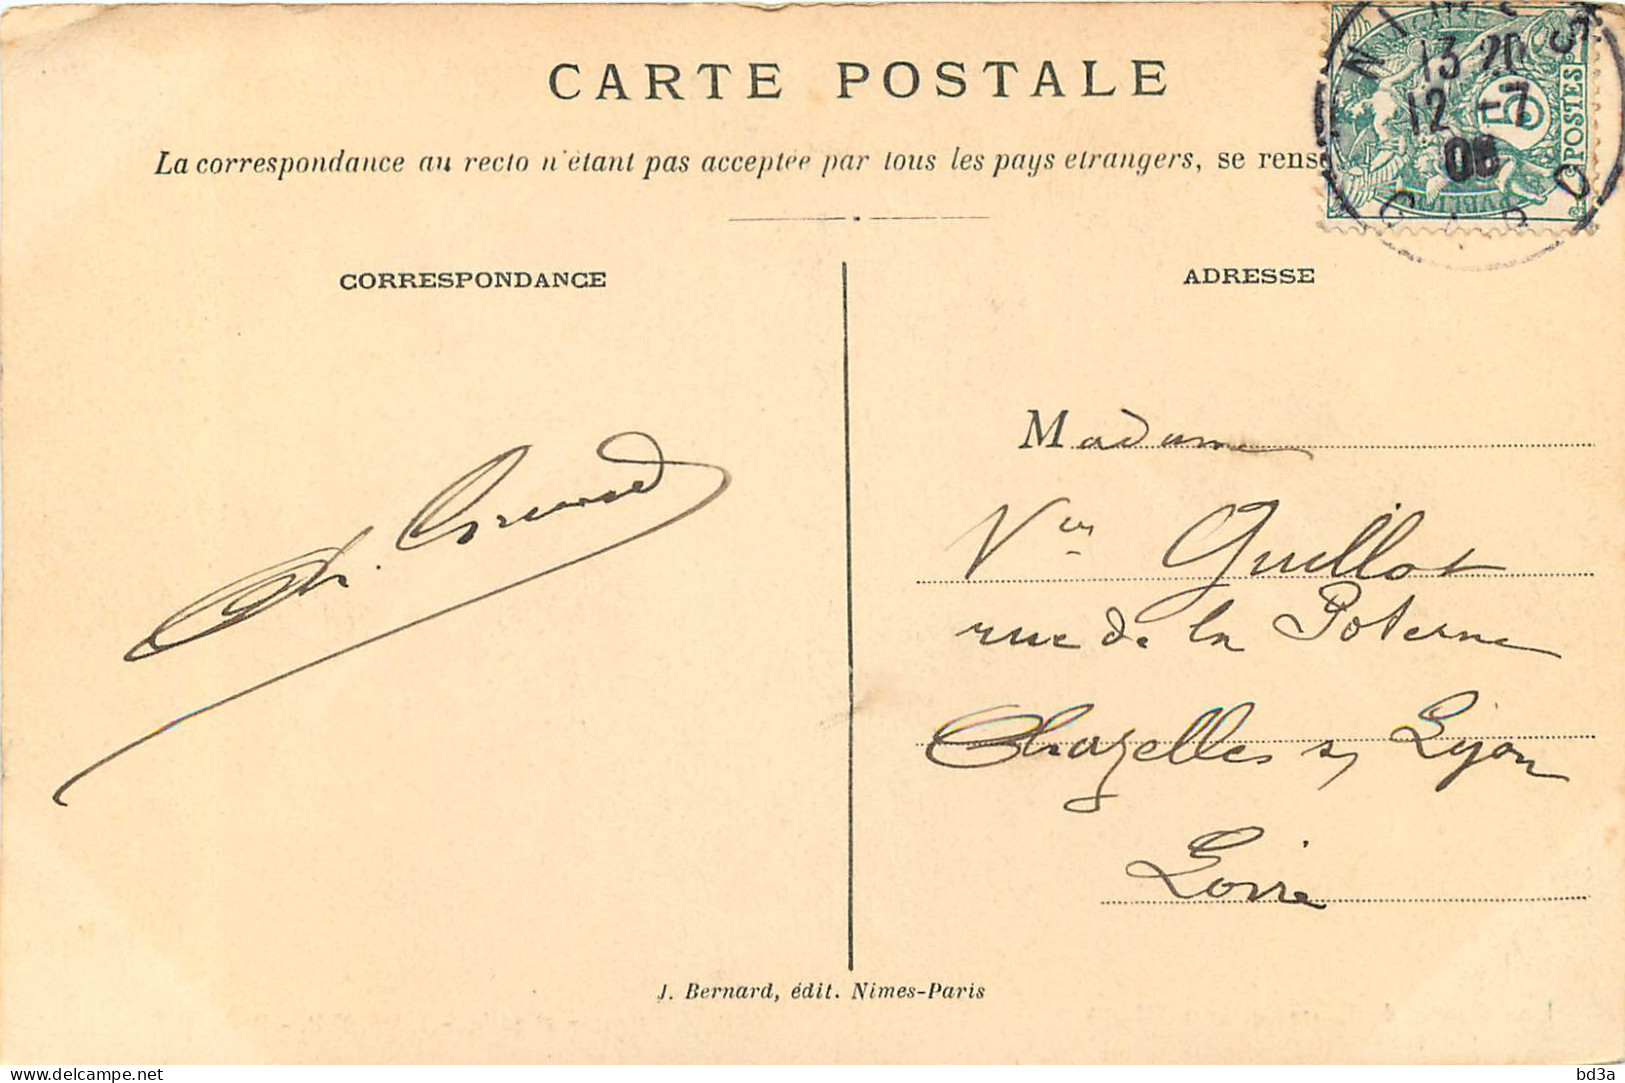 CARTE POSTALE
La correspondance au recto n'étant pas acceptée par tous les pays etrangers, se rens
NIMES
13 20
12 -7
08
GARD
5
POSTES
CORRESPONDANCE
ADRESSE
Madame
Vve Guillot
rue de la Poterne
Chazelles s/ Lyon
Loire
J. Bernard, édit. Nimes-Paris
www.delcampe.net
bd3a